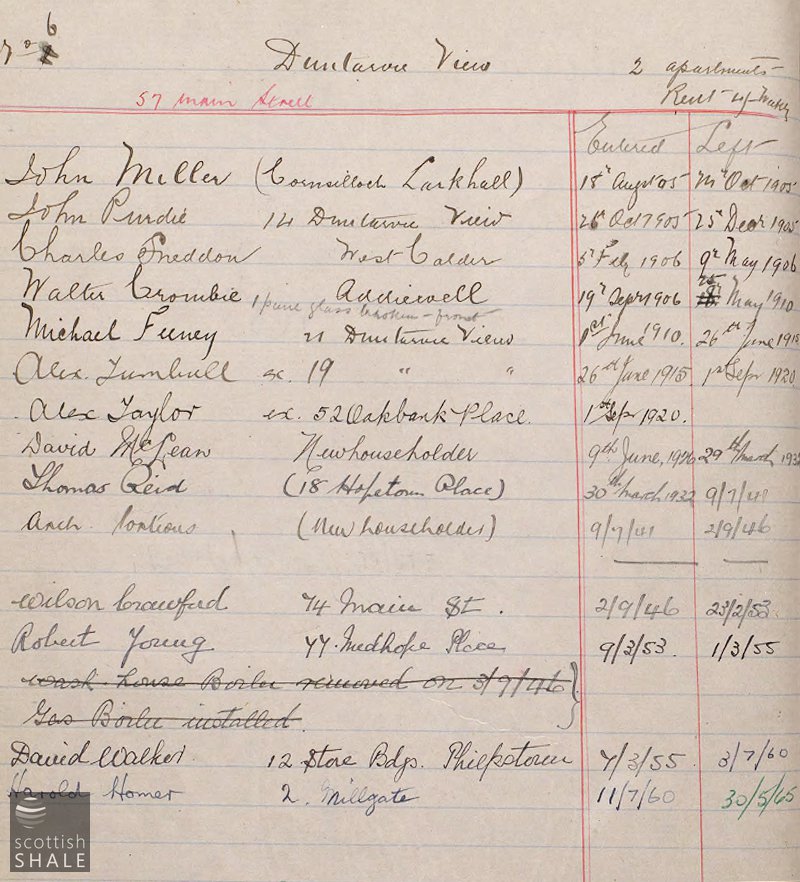 No 6 Duntarvie View 2 apartments
57 Main Street Rent
Entered Left
John Miller (Cornsilloch Larkhall) 18th Augst 05 Oct 1905
John Purdie 14 Duntarvie View 26th Oct 1905 25th Decr 1905
Charles Sneddon West Calder 5th Feby 1906 9th May 1906
Walter Crombie Addiewell 19th Sepr 1906 25 May 1910
1 pane glass broken - front
Michael Feeney 21 Duntarvie View 1st June 1910. 26th June 1915
Alex. Turnbull ex. 19 " " 26th June 1915. 1st Sepr 1920
Alex Taylor ex. 52 Oakbank Place. 1st Sepr 1920.
David McLean Newhouseholder 9th June, 1926 29th March 1932
Thomas Reid (18 Hopetown Place) 30th March 1932 9/7/41
Arch. Porteous (New householder) 9/7/41 2/9/46
Wilson Crawford 74 Main St. 2/9/46 23/2/53
Robert Young 77 Midhope Place 9/3/53. 1/3/55
Wash-house Boiler removed on 3/9/46
Gas Boiler installed.
David Walker. 12 Store Bdgs. Philpstoun 7/3/55 3/7/60
Harold Homer 2. Millgate 11/7/60 30/5/65
scottish
SHALE